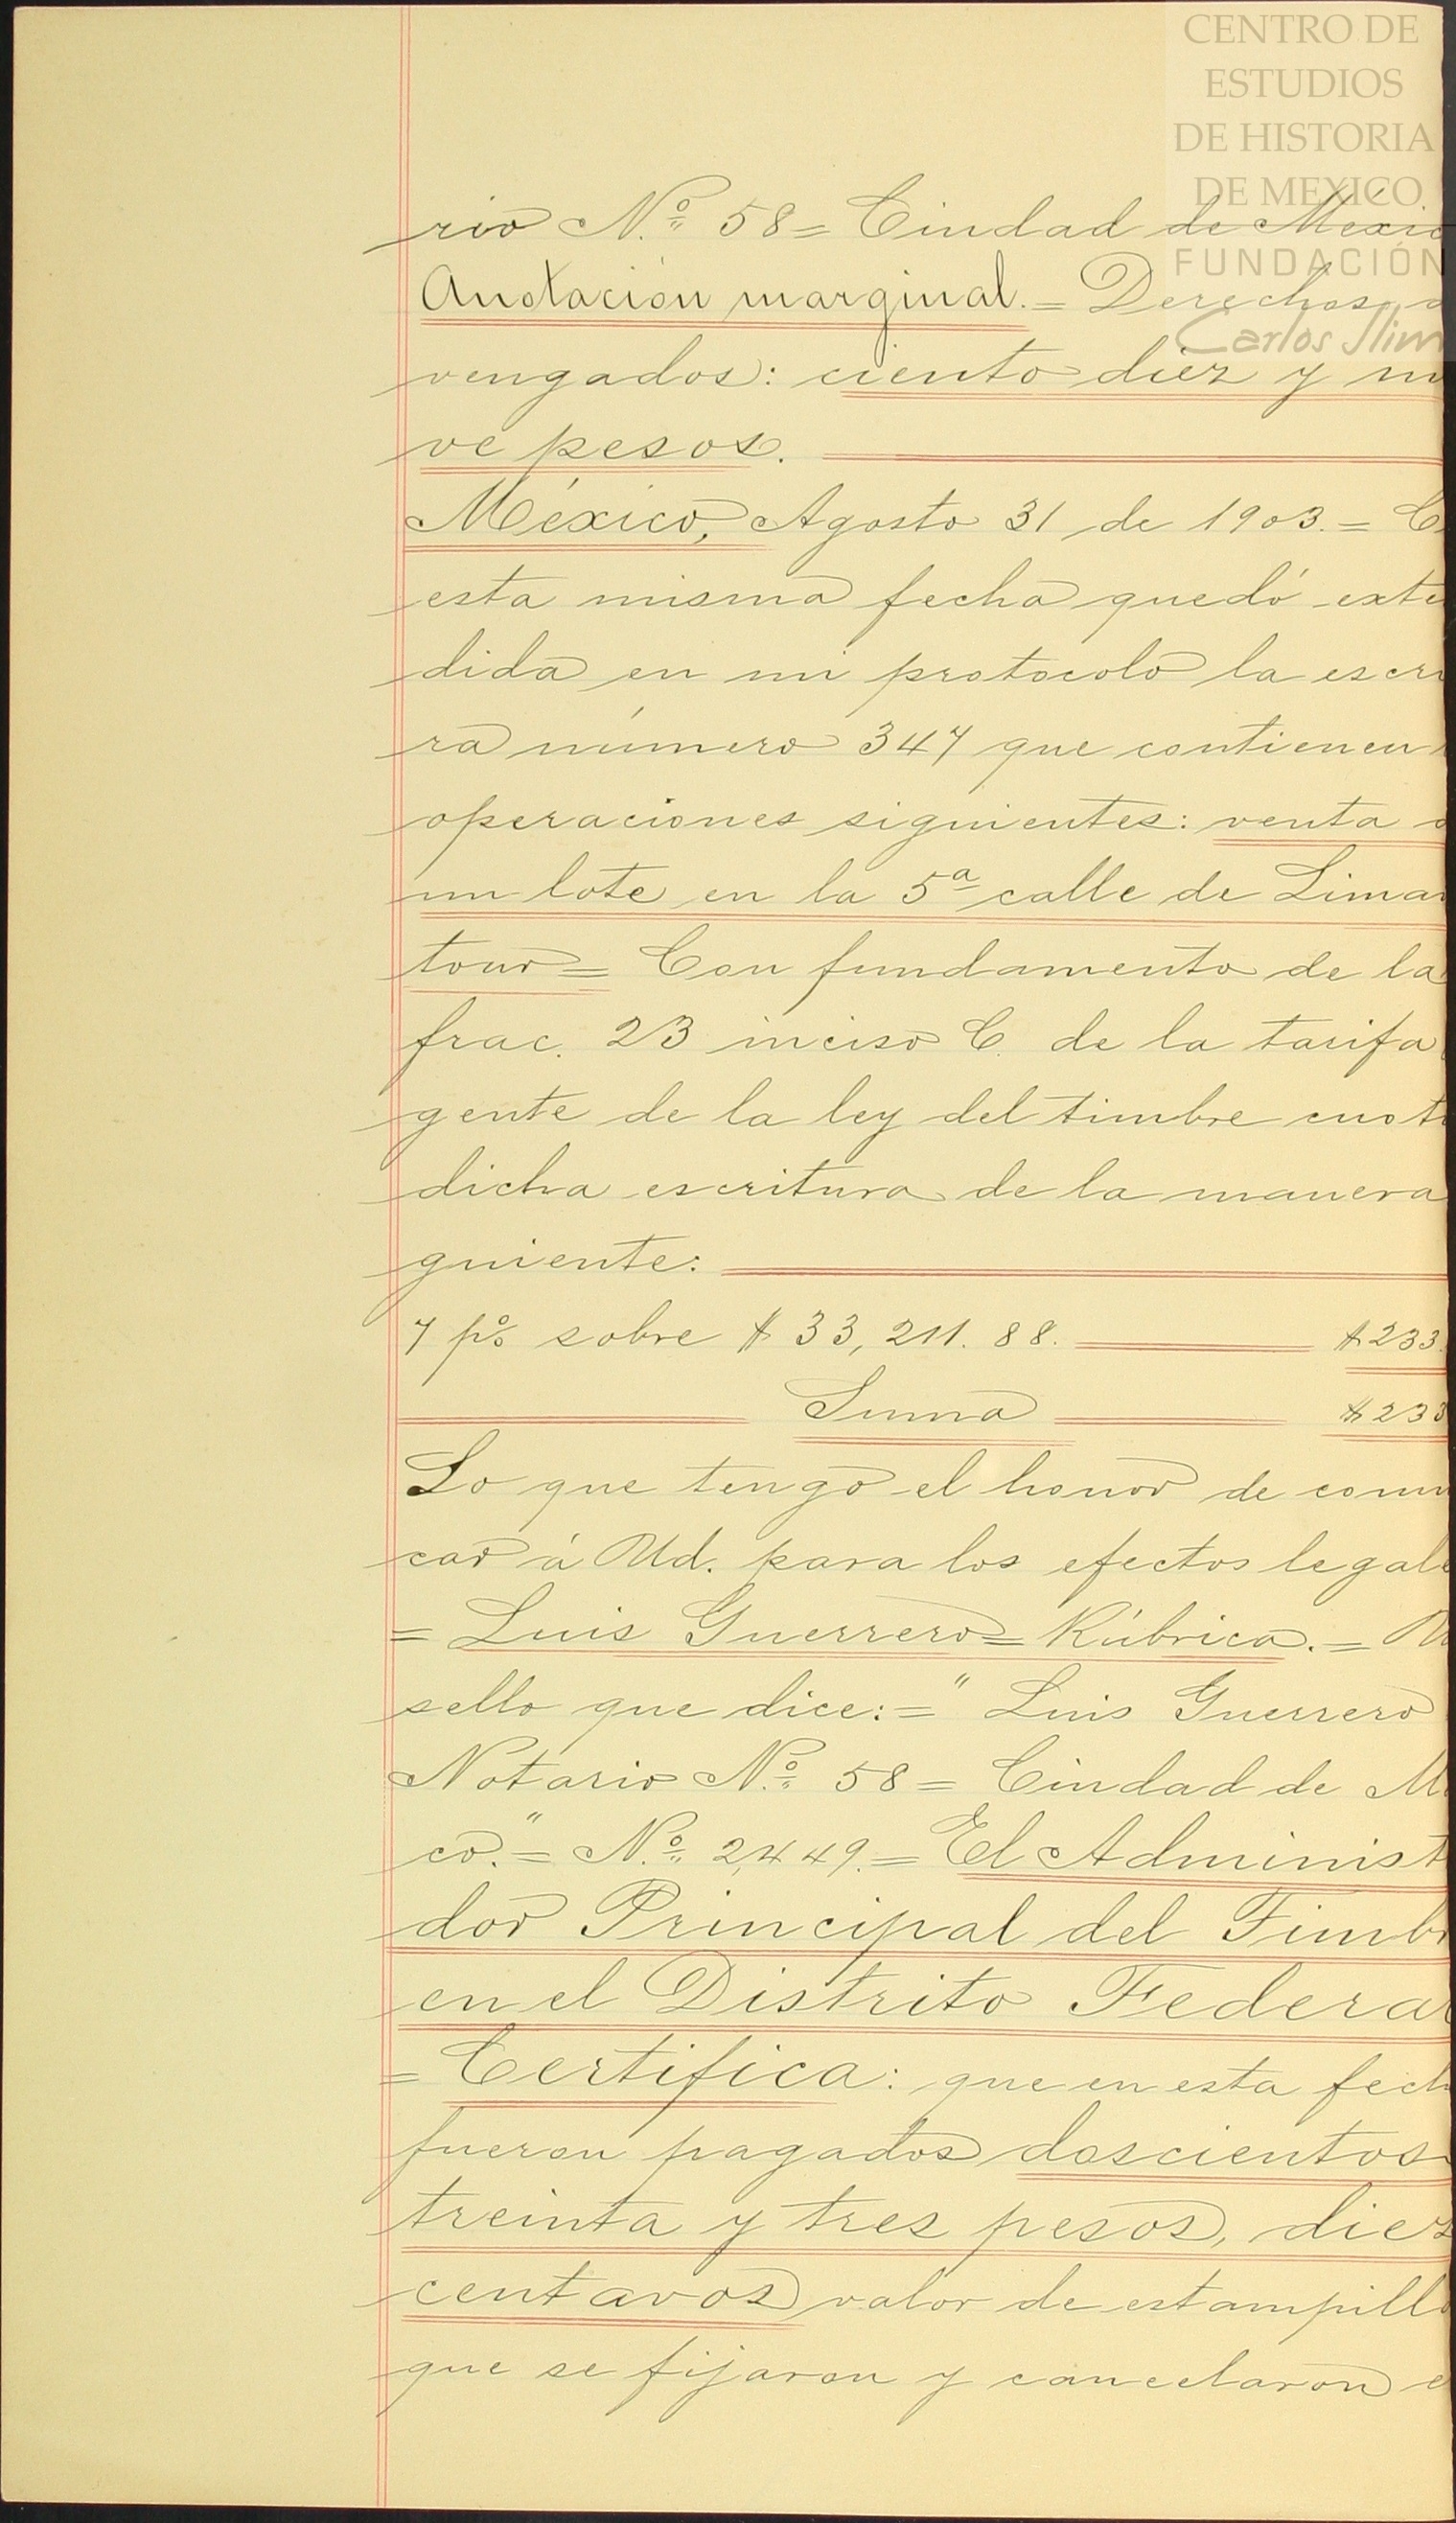 CENTRO DE
ESTUDIOS
DE HISTORIA
DE MEXICO
FUNDACIÓN
Carlos Slim
rio N.º 58 = Ciudad de Méxic
Anotación marginal. = Derechos
vengados: ciento diez y nu
ve pesos.
México, Agosto 31 de 1903. =
esta misma fecha quedó exte
dida en mi protocolo la escri
ra número 347 que contienen
operaciones siguientes: venta
un lote en la 5ª calle de Liman
tour = Con fundamento de la
frac. 23 inciso C. de la tarifa
gente de la ley del timbre cuoti
dicha escritura de la manera
guiente:
7 p% sobre $ 33,211.88. $233.
Suma $233
Lo que tengo el honor de comu
car á Ud. para los efectos legale
= Luis Guerrero = Rúbrica. = U
sello que dice: = " Luis Guerrero
Notario N.º 58 = Ciudad de Mé
co." = N.º 2,449. = El Administ
dor Principal del Timbr
en el Distrito Federal
= Certifica: que en esta fech
fueron pagados doscientos
treinta y tres pesos, diez
centavos valor de estampilla
que se fijaron y cancelaron e